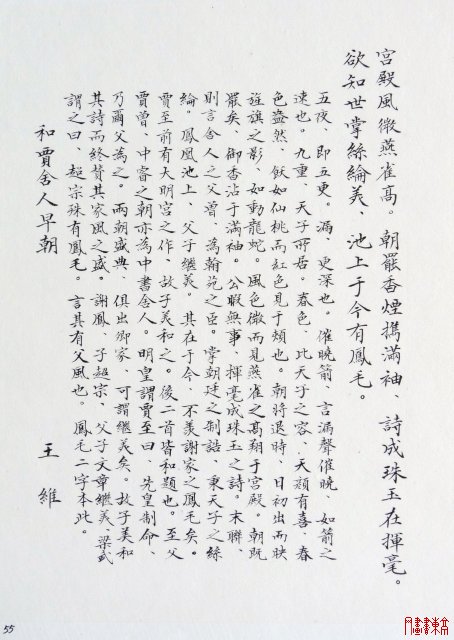 宮殿風微燕雀高。朝罷香煙攜滿袖、詩成珠玉在揮毫。
欲知世掌絲綸美、池上于今有鳳毛。
五夜、即五更。漏、更深也。催曉箭、言漏聲催曉、如箭之
速也。九重、天子所居。春色、比天子之容、天顏有喜、春
色盎然、飫如仙桃而紅色見于頰也。朝將退時、日初出而映
旌旗之影、如動龍蛇。風色微而見燕雀之高翔于宮殿。朝既
罷矣、御香沾于滿袖。公暇無事、揮毫成珠玉之詩。末聯、
則言舍人之父曾、為翰苑之臣。掌朝廷之制誥、秉天子之絲
綸。鳳凰池上、父子繼美。其在于今、不羨謝家之鳳毛矣。
賈至前有大明宮之作、故子美和之。後二首皆和題也。至父
賈曾、中睿之朝亦為中書舍人。明皇謂賈至曰、先皇制命、
乃爾父為之。兩朝盛典、俱出卿家 可謂繼美矣。故子美和
其詩而終贊其家風之盛。謝鳳、子超宗、父子文章繼美、梁武
謂之曰、超宗殊有鳳毛。言其有父風也。鳳毛二字本此。
和賈舍人早朝 王維
55